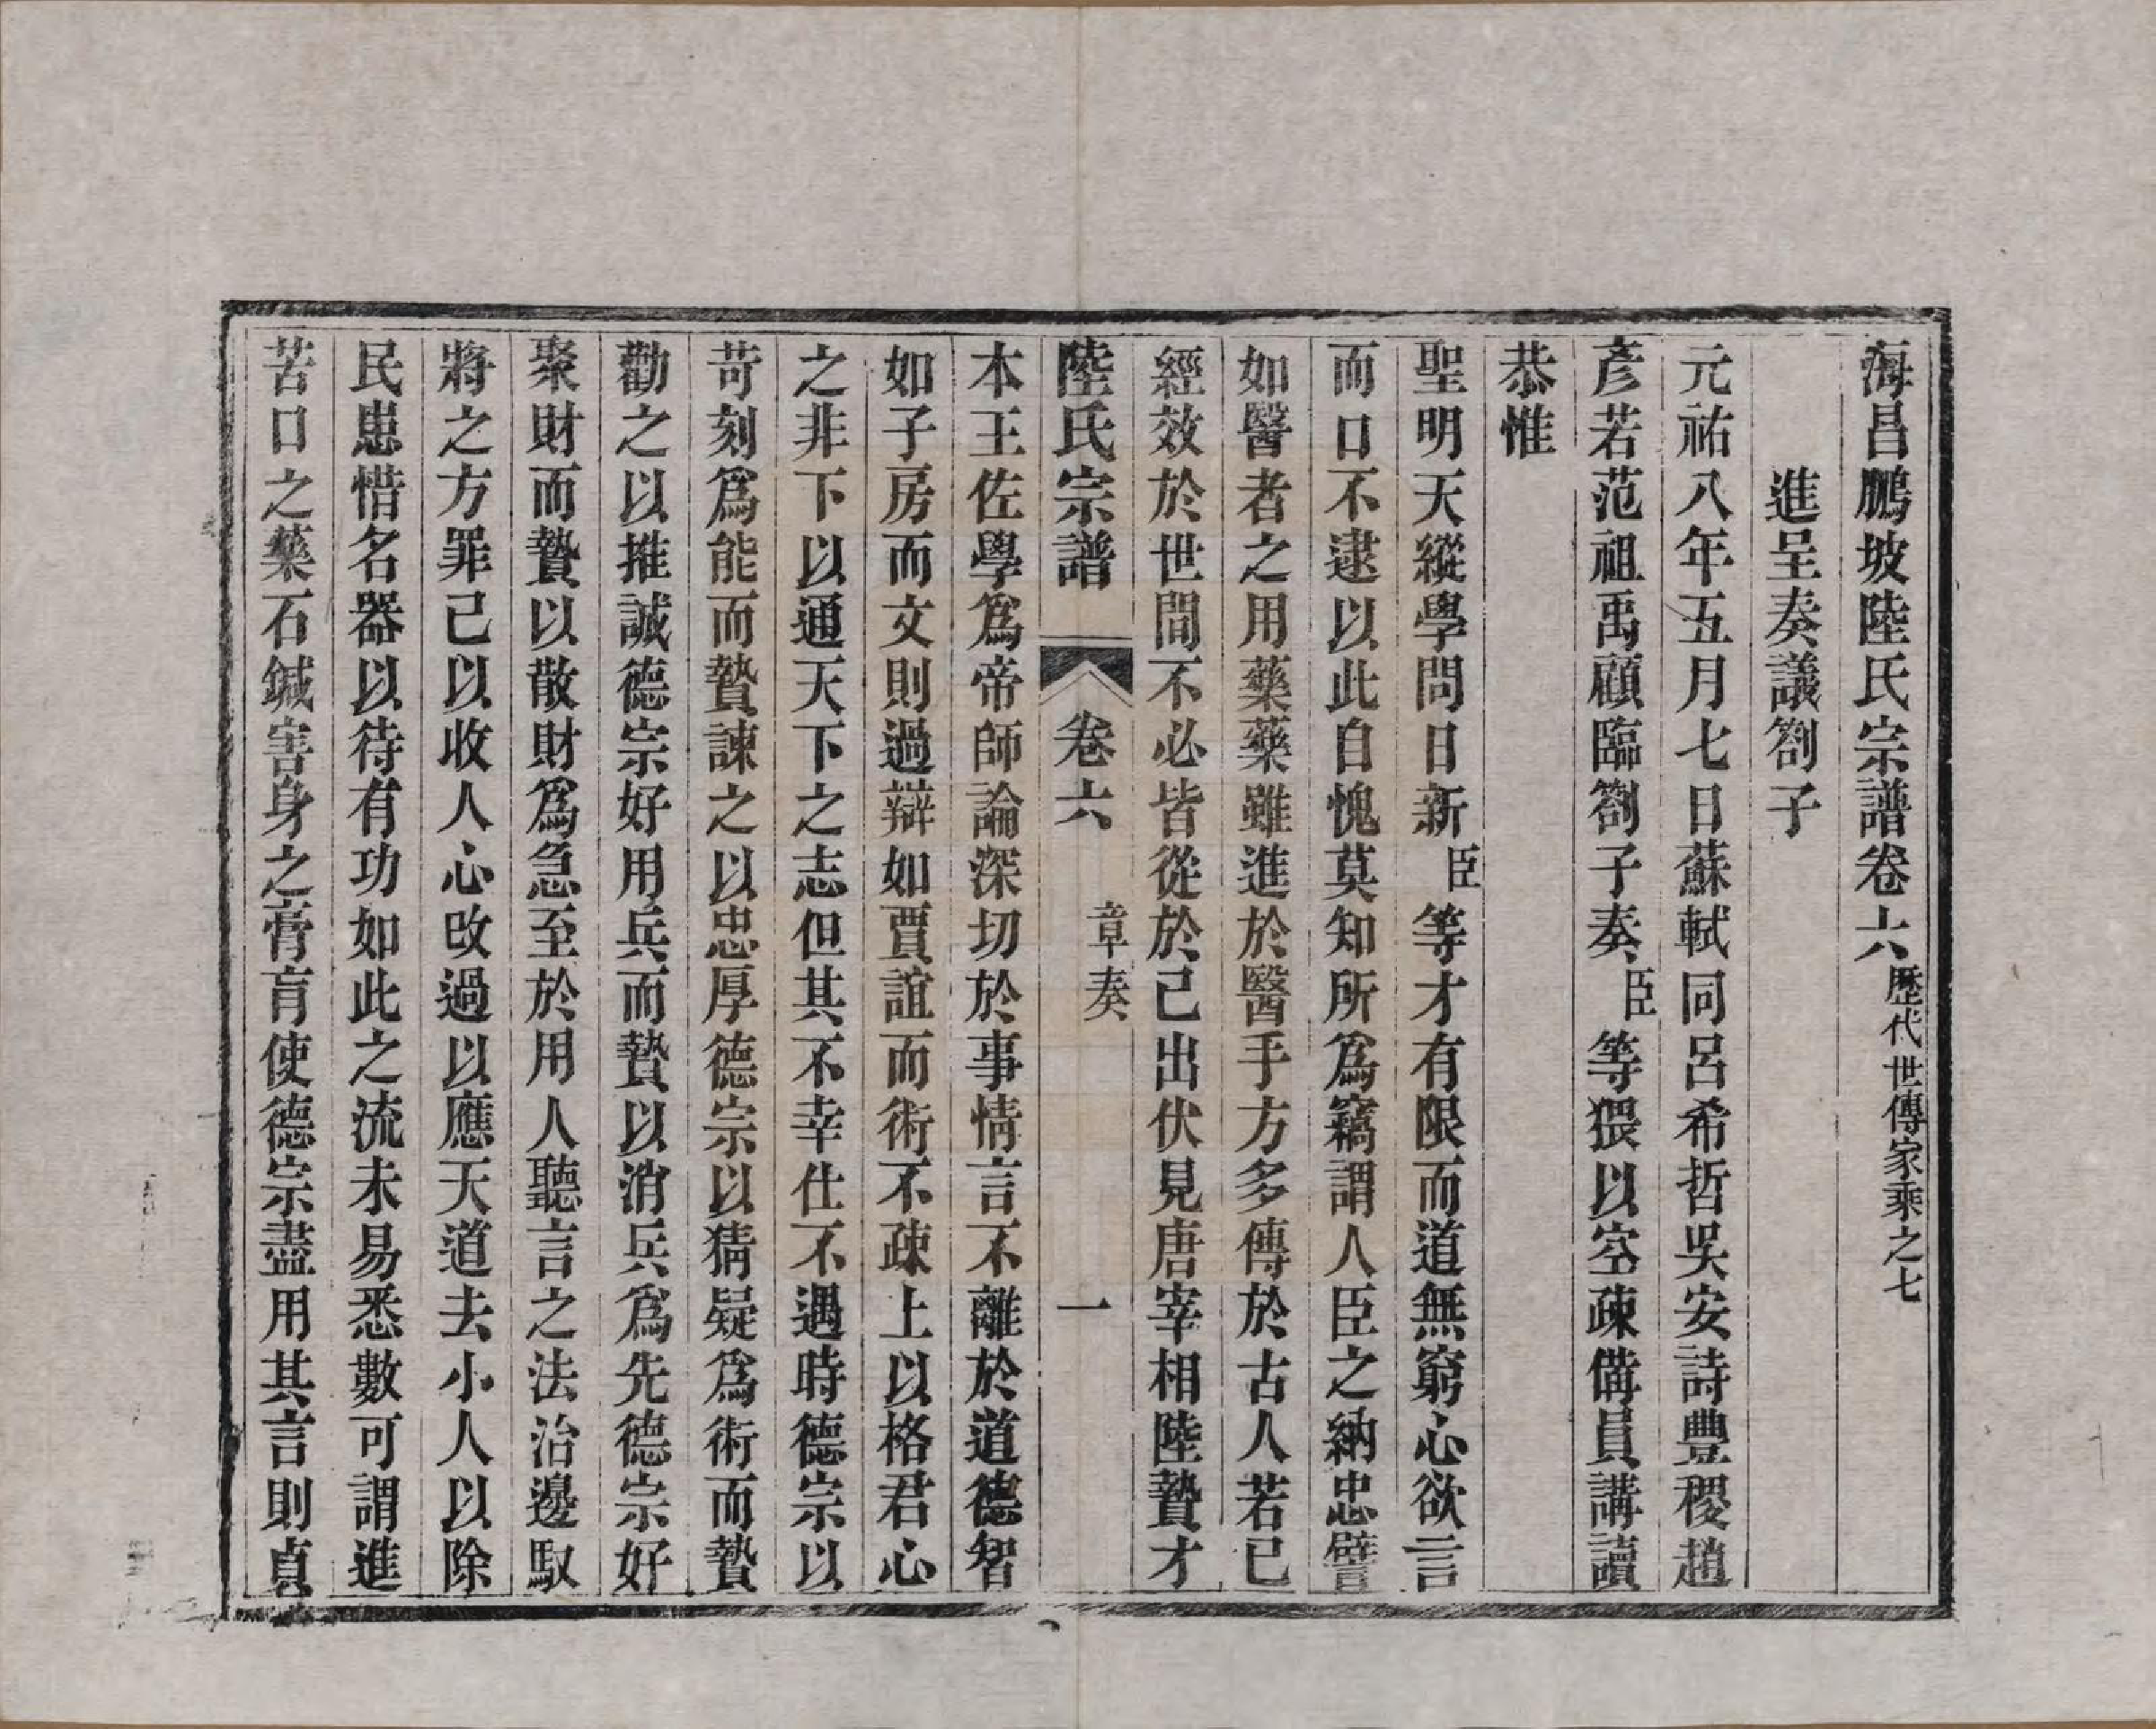 海昌鵬坡陸氏宗譜卷六歷代世傳家乘之七
進呈奏議劄子
元祐八年五月七日蘇軾同呂希哲吳安詩豐稷趙
彥若范祖禹顧臨劄子奏臣等猥以空疎備員講讀
恭惟
聖明天縱學問日新臣等才有限而道無窮心欲言
而口不逮以此自愧莫知所爲竊謂人臣之納忠譬
如醫者之用藥藥雖進於醫手方多傳於古人若已
經效於世間不必皆從於己出伏見唐宰相陸贄才
陸氏宗譜 卷六 章奏 一
本王佐學爲帝師論深切於事情言不離於道德智
如子房而文則過辯如賈誼而術不疎上以格君心
之非下以通天下之志但其不幸仕不遇時德宗以
苛刻爲能而贄諫之以忠厚德宗以猜疑爲術而贄
勸之以推誠德宗好用兵而贄以消兵爲先德宗好
聚財而贄以散財爲急至於用人聽言之法治邊馭
將之方罪己以收人心改過以應天道去小人以除
民患惜名器以待有功如此之流未易悉數可謂進
苦口之藥石鍼害身之膏肓使德宗盡用其言則貞